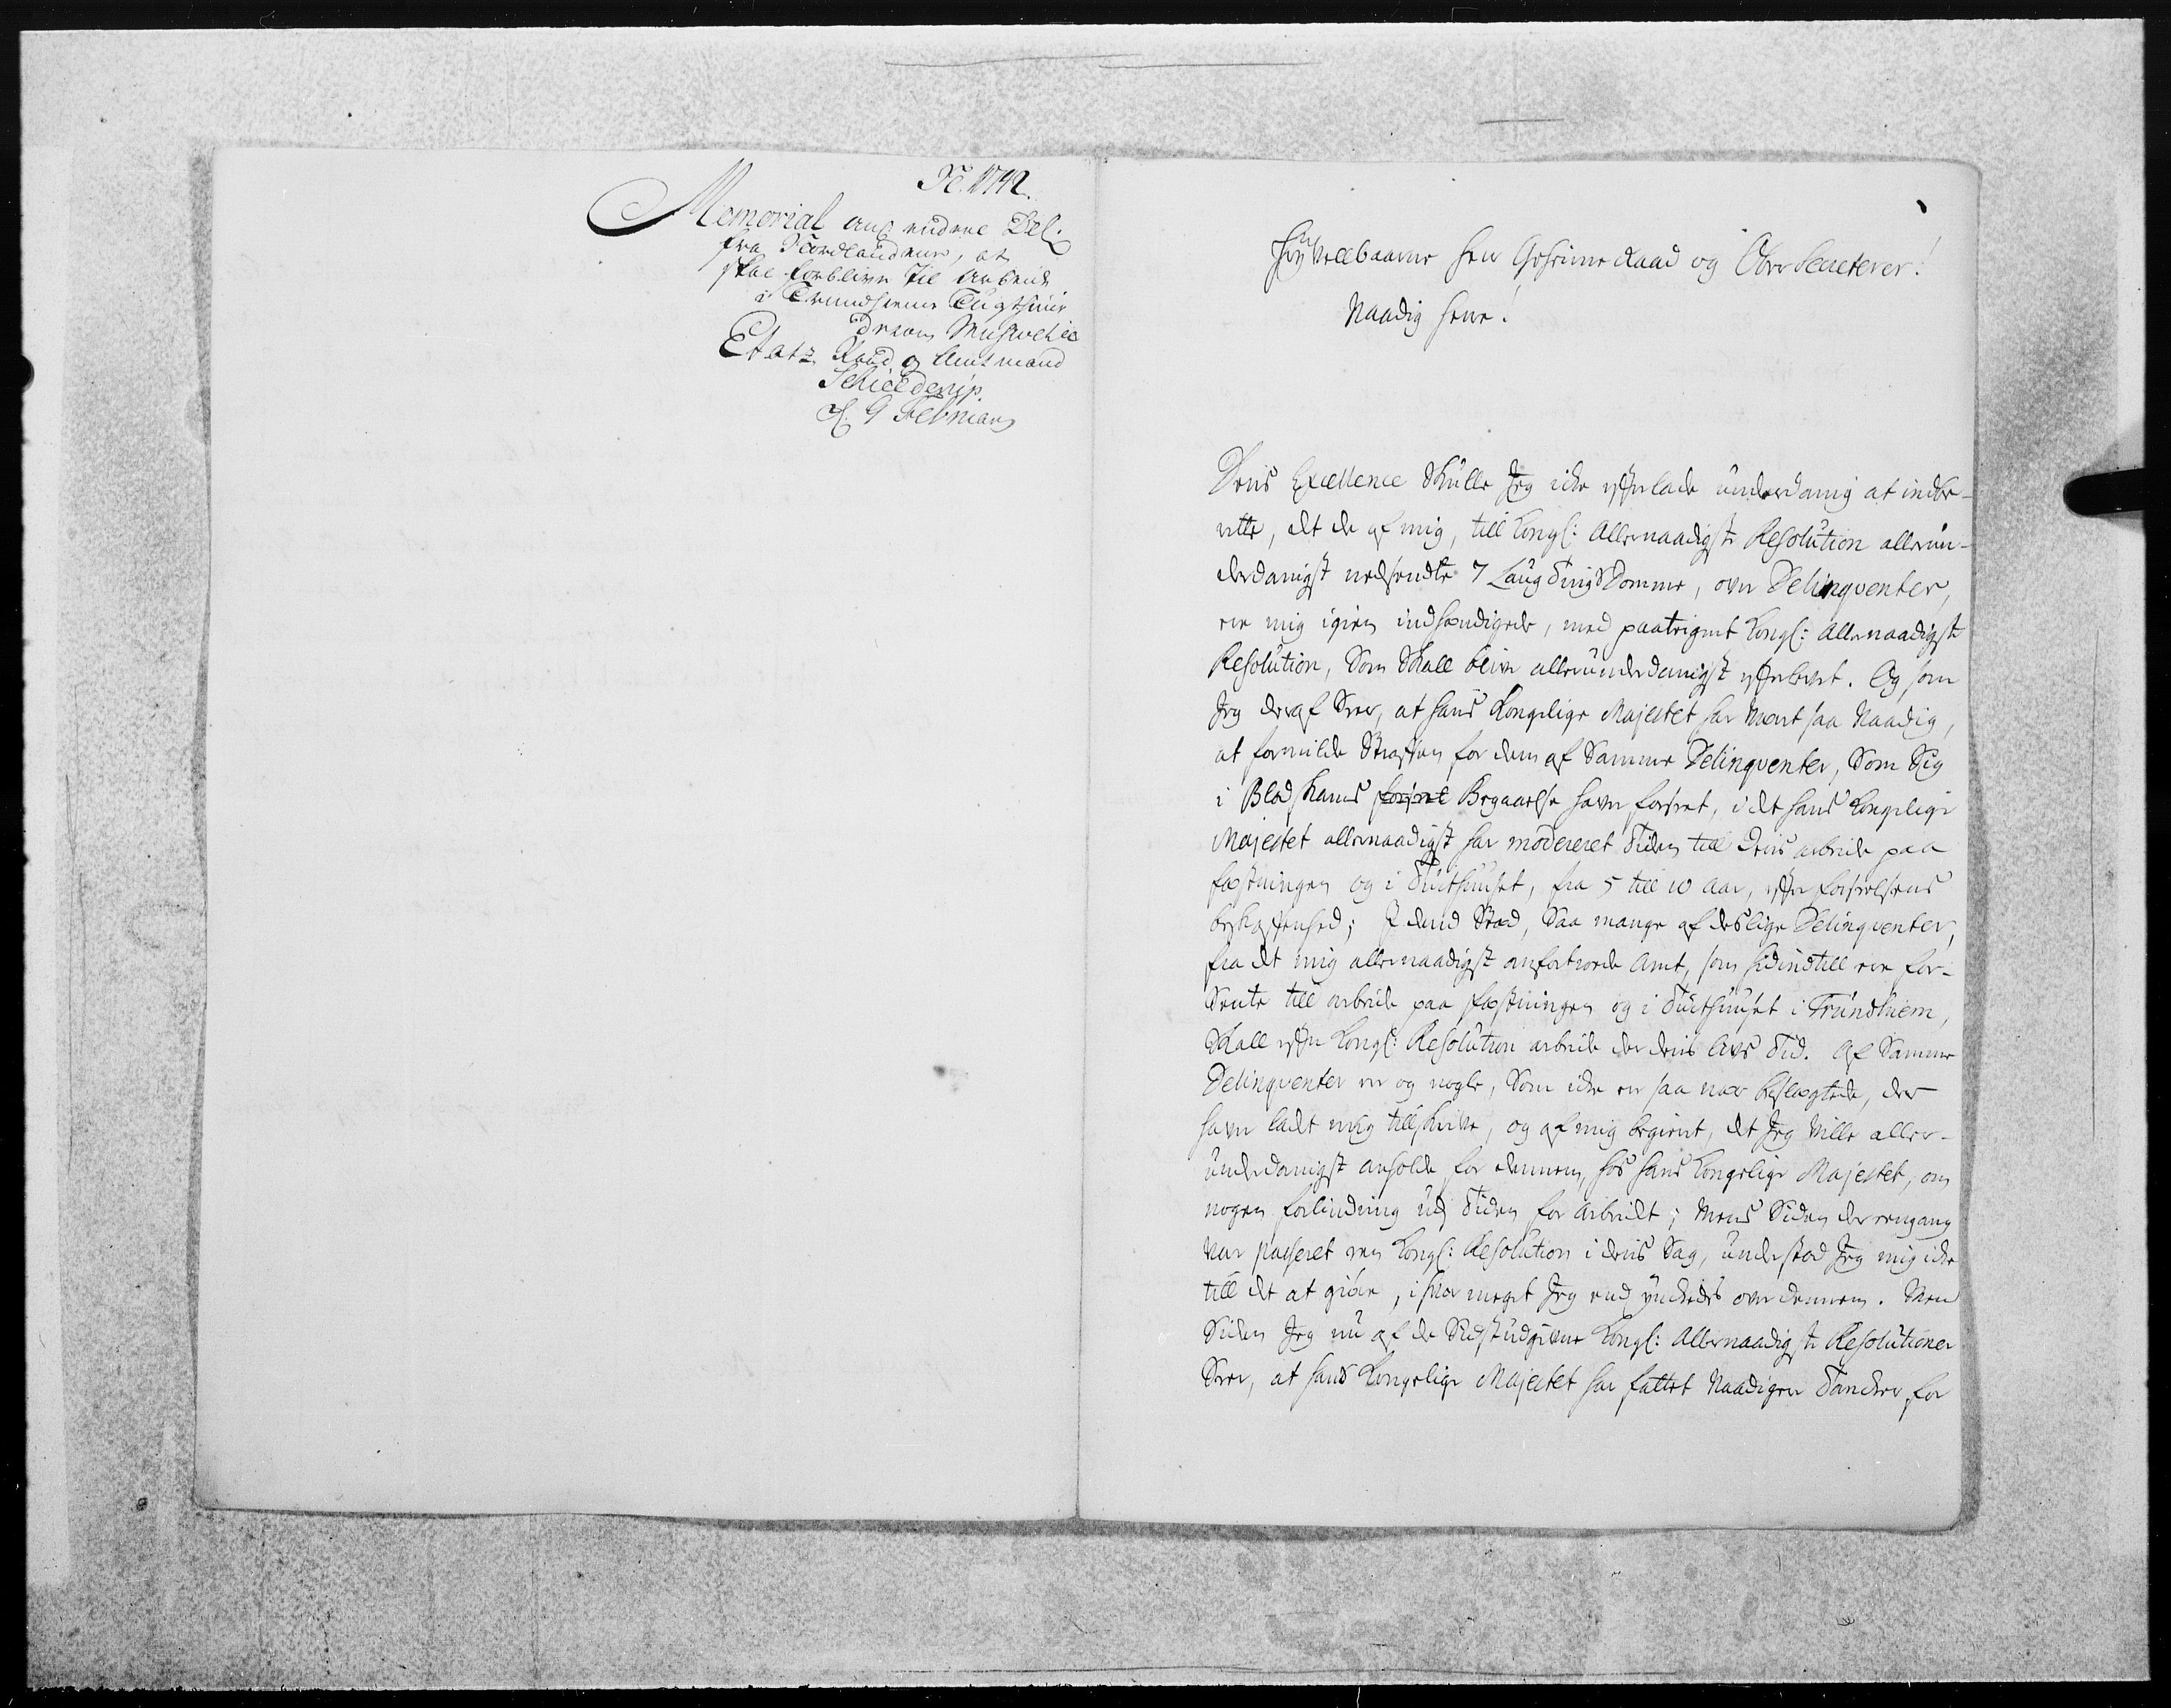 No. 1742.
Memorial ang endeel Del:
fra Nordlandene, at
skal forblive til Arbeide
i Trundhiems Tugthuus
Etatz Raad og Amtmand
Schielderup.
d. 9 Februarj
Høy Velbaarne Herr Geheime Raad og Ober Secreterer!
Naadig Herre!
Deris Excellence skulle Jeg icke efterlade underdanig at indbe-
rette, at de af mig, till Kongl: Allernaadigste Resolution allerun-
derdanigst nedsendte 7 Laugtings Domme, over Delinqventer,
ere mig igien indhændigede, med paategnet Kongl: Allernaadigste
Resolution, Som Skall blive allerunderdanigst efterlevet. Og som
Jeg deraf Seer, at Hans Kongelige Majestet har Vært saa Naadig,
at formilde Straffen for dem af Samme Delinqventer, Som Sig
i Blodskams Begaaelse haver forseet, i det Hans Kongelige
Majestet allernaadigst har modereret Tiden till deris arbeide paa
fæstningen og i Tugthuuset, fra 5 till 10 Aar, efter forseelsens
beskaffenhed; I dend Sted, Saa mange af deslige Delinqventer,
fra det mig allernaadigst anfortroede Amt, som hidindtill ere for-
Sente till arbeide paa fæstningen og i Tugthuuset i Trundhiem,
Skall efter Kongl: Resolution arbeide der deris Livs Tid. Af Samme
Delinqventer er og nogle, Som icke er saa nær beslægtede, der
haver ladt mig tillskrive, og af mig begiert, at Jeg Ville aller-
underdanigst anholde for dennem, hos Hans Kongelige Majestet, om
nogen forlindring udj Tiden for Arbeidet; Mens Siden der eengang
var passeret een Kongl: Resolution i deris Sag, understod Jeg mig icke
till det at giøre, i hvor meget Jeg end ynckedes over dennem. Men
Siden Jeg nu af de Sidst udgivne Kongl: Allernaadigste Resolutioner
Seer, at Hans Kongelige Majestet har fattet Naadigere Tancker for